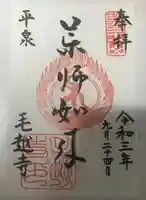 奉拝
令和三年
九月二十四日
薬師如来
平泉
毛越寺